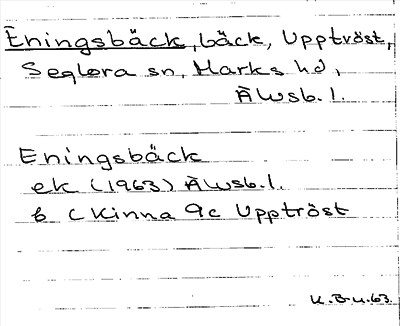 Eningsbäck, bäck, Upptröst,
Seglora sn, Marks hd,
Älvsb. l.
Eningsbäck
ek (1963) Älvsb. l.
6 C Kinna 9c Upptröst